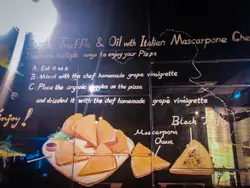 Truffle & Oil with Italian Mascarpone Che
There are multiple ways to enjoy your Pizza
A: Eat it as is
B: Mixed with the chef homemade grape vinaigrette
C: Place the organic veggies on the pizza
and drizzled it with the chef homemade grape vinaigrette
Enjoy!
Black T
Mascarpone
Cheese